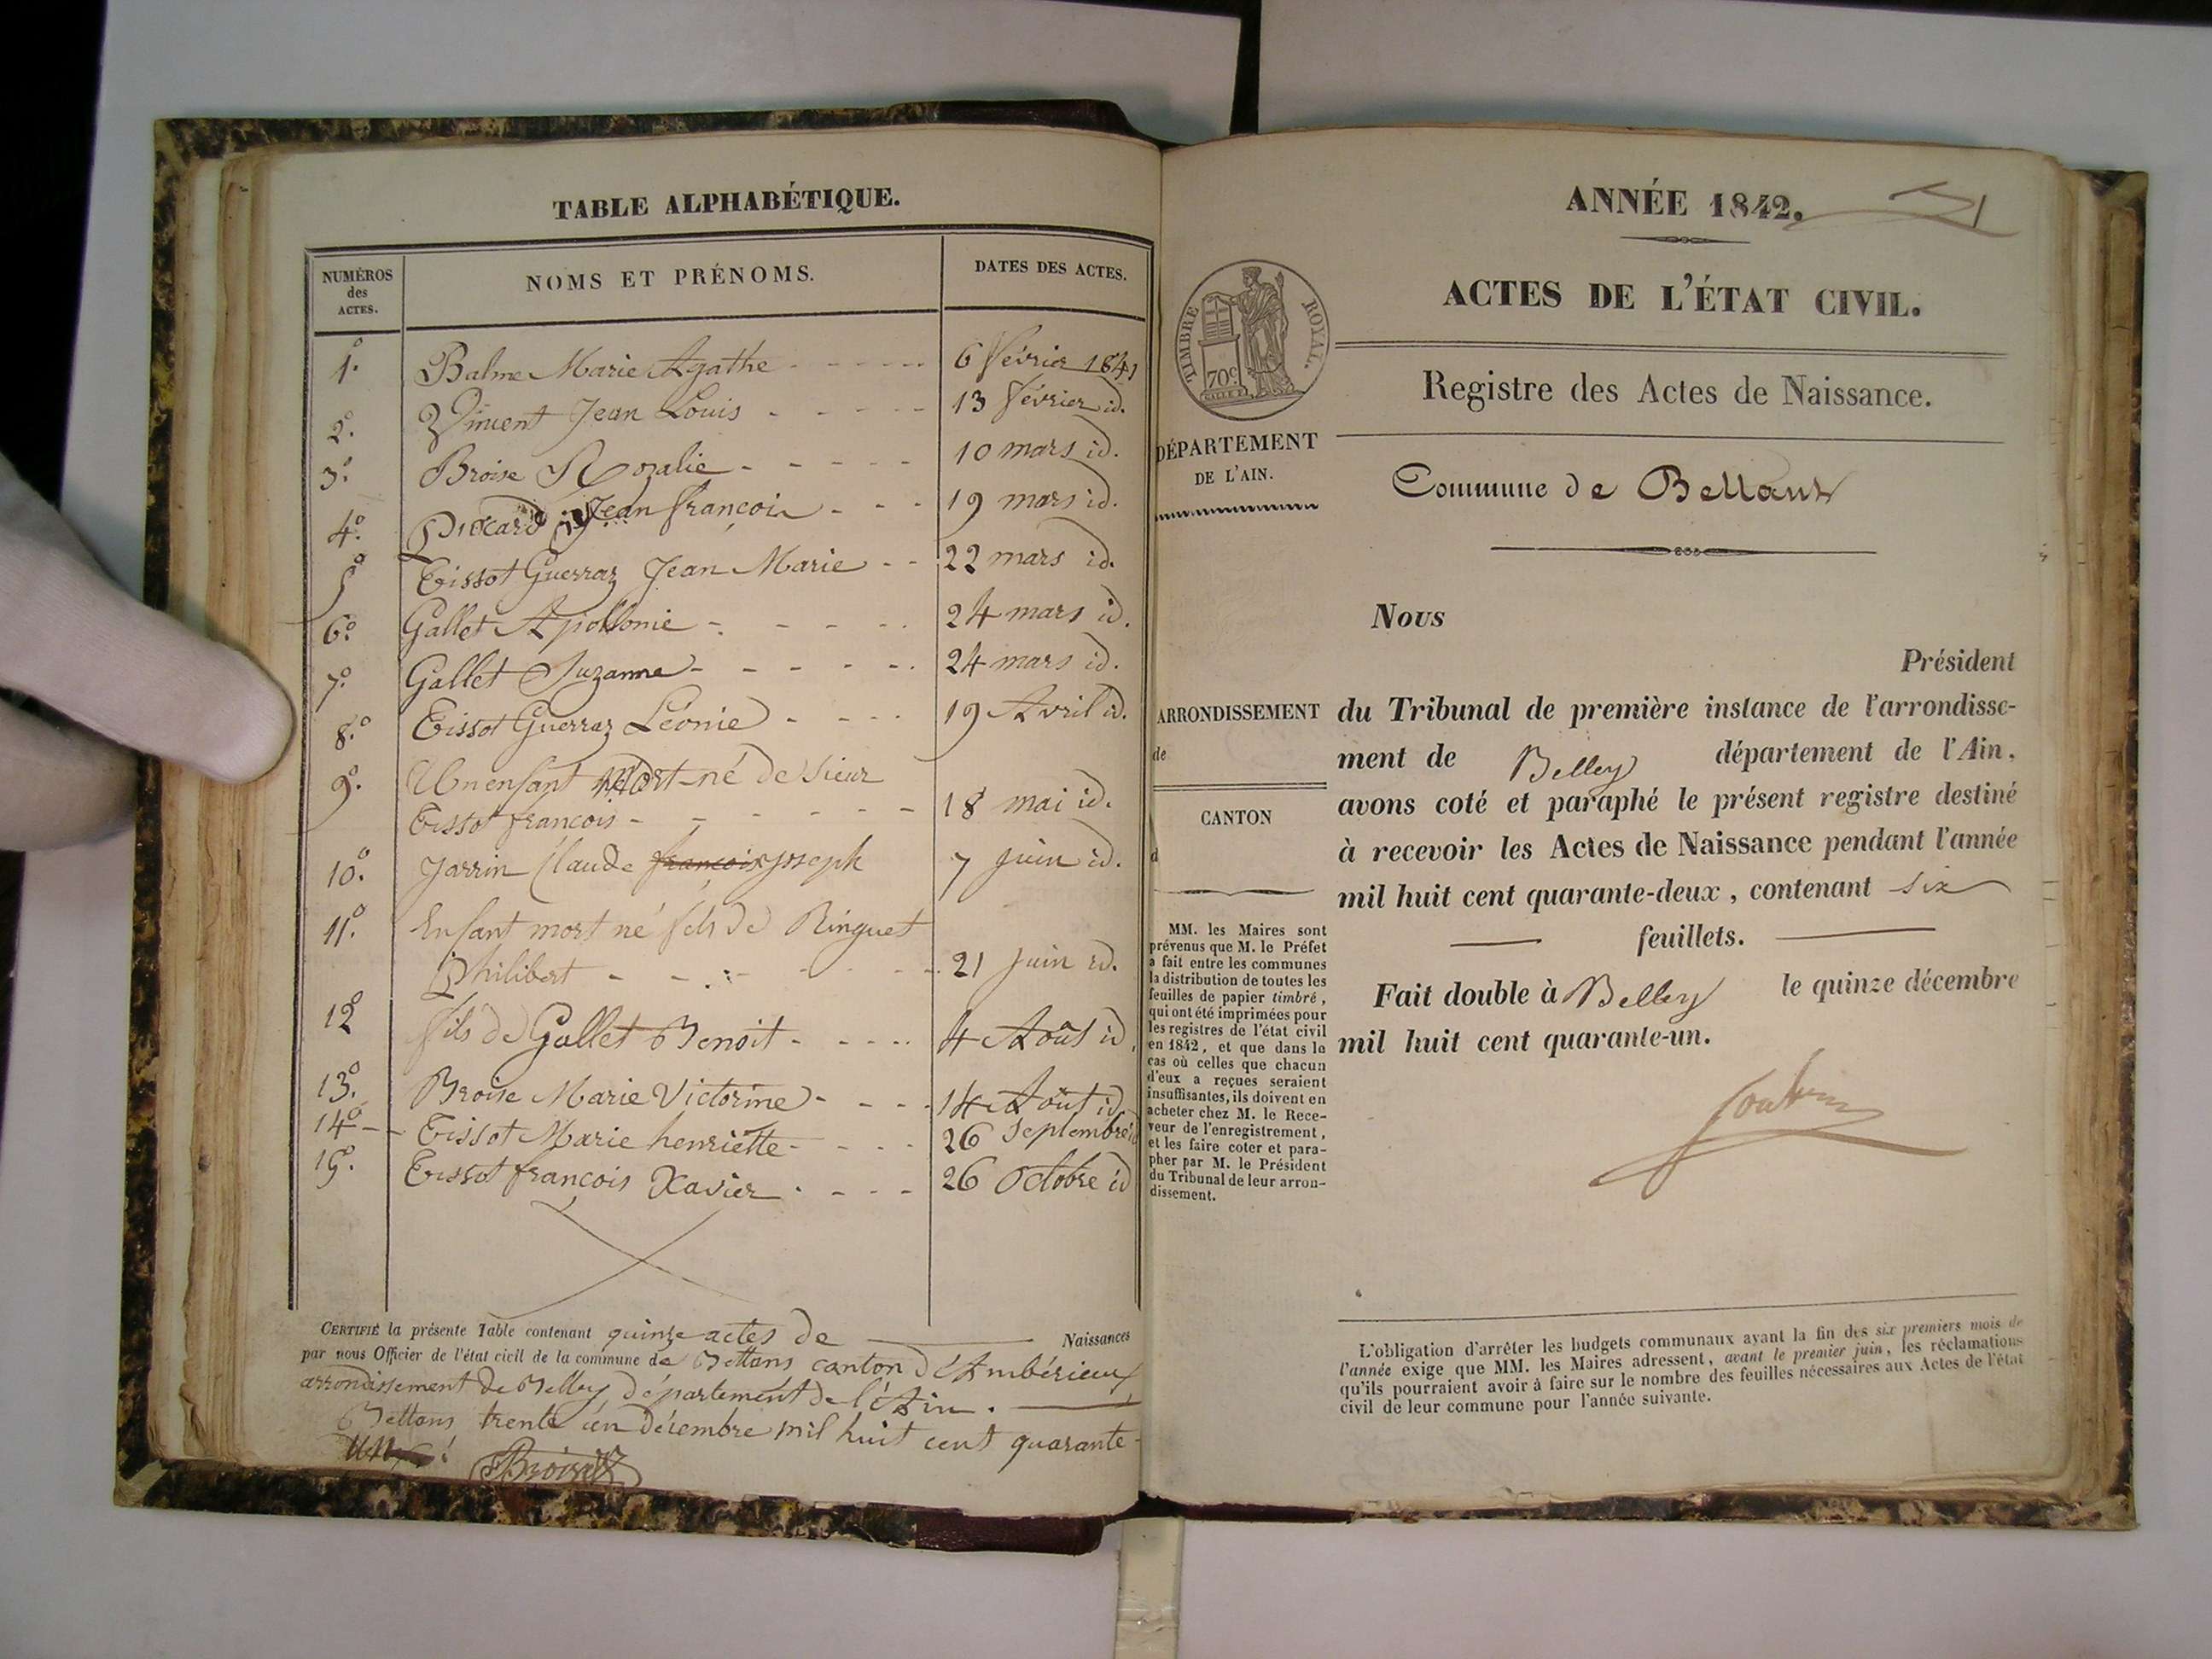 TABLE ALPHABÉTIQUE.
NUMÉROS
des
ACTES.
NOMS ET PRÉNOMS.
DATES DES ACTES.
1.° Balme Marie Agathe - - - - - 6 février 1841
2.° Vincent Jean Louis - - - - - 13 février id.
3.° Broise Rozalie - - - - - 10 mars id.
4.° Jean françois - - - 19 mars id.
5° Tissot Guerraz Jean Marie - - 22 mars id.
6.° Gallet Apollonie - - - - - 24 mars id.
7.° Gallet Suzanne - - - - - 24 mars id.
8.° Tissot Guerraz Léonie - - - - 19 Avril id.
9.° Un enfant Mort-né de sieur
Tissot françois - - - - - - 18 mai id.
10.° Jarrin Claude françois joseph 7 juin id.
11.° Enfant mort né fils de Ringuet
Philibert - - - - - - - 21 juin id.
12° fils de Gallet Benoit - - - - - 4 Août id.
13.° Broise Marie Victorine - - - - 14 Août id.
14° - Tissot Marie henriette - - - - 26 Septembre id
15.° Tissot françois Xavier - - - - 26 Octobre id
CERTIFIÉ la présente Table contenant quinze actes de Naissances
par nous Officier de l'état civil de la commune de Bettans canton d'Ambérieux
arrondissement de Belley département de l'Ain.
Bettans trente un décembre mil huit cent quarante-
un.
ANNÉE 1842.
ACTES DE L'ÉTAT CIVIL.
TIMBRE ROYAL.
70c
Registre des Actes de Naissance.
DÉPARTEMENT
DE L'AIN.
Commune de Bettans
Nous
Président
ARRONDISSEMENT
de
du Tribunal de première instance de l'arrondisse-
ment de Belley département de l'Ain,
avons coté et paraphé le présent registre destiné
à recevoir les Actes de Naissance pendant l'année
mil huit cent quarante-deux, contenant six
feuillets.
Fait double à Belley le quinze décembre
mil huit cent quarante-un.
CANTON
d
MM. les Maires sont
prévenus que M. le Préfet
a fait entre les communes
la distribution de toutes les
feuilles de papier timbré,
qui ont été imprimées pour
les registres de l'état civil
en 1842, et que dans le
cas où celles que chacun
d'eux a reçues seraient
insuffisantes, ils doivent en
acheter chez M. le Rece-
veur de l'enregistrement,
et les faire coter et para-
pher par M. le Président
du Tribunal de leur arron-
dissement.
L'obligation d'arrêter les budgets communaux avant la fin des six premiers mois de
l'année exige que MM. les Maires adressent, avant le premier juin, les réclamations
qu'ils pourraient avoir à faire sur le nombre des feuilles nécessaires aux Actes de l'état
civil de leur commune pour l'année suivante.